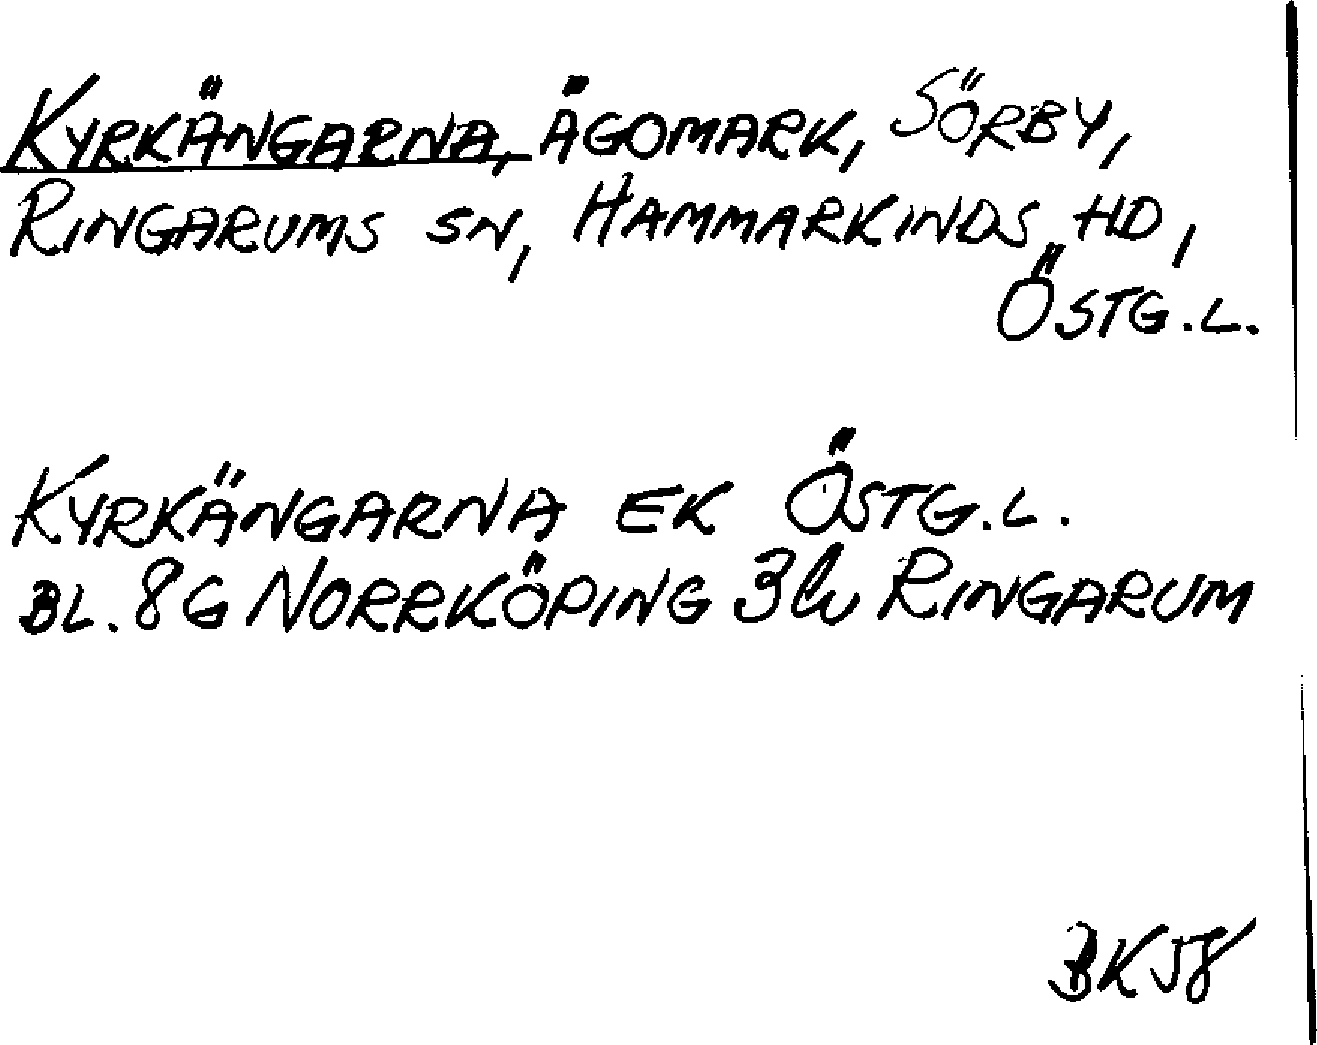 KYRKÄNGARNA, ÄGOMARK, SÖRBY,
RINGARUMS SN, HAMMARKINDS HD,
ÖSTG.L.
KYRKÄNGARNA EK ÖSTG.L.
BL. 8G NORRKÖPING 3 RINGARUM
BK58